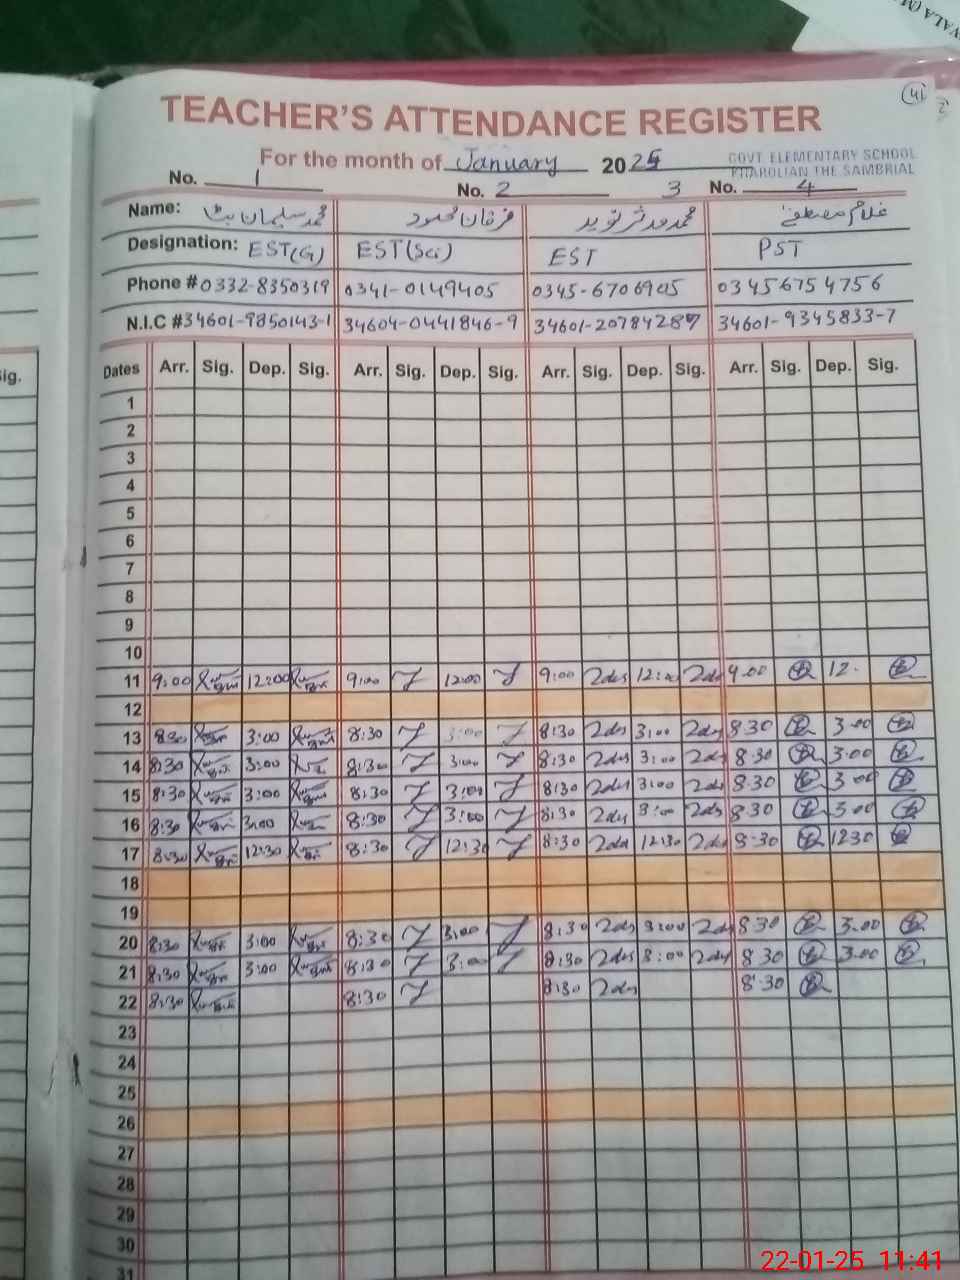 41
TEACHER'S ATTENDANCE REGISTER
For the month of January 2025
GOVT. ELEMENTARY SCHOOL
KHAROLIAN THE SAMBRIAL
No. 1 No. 2 3 No. 4
Name: محمد سلیمان بٹ فرقان محمود محمد مدثر نوید غلام مصطفیٰ
Designation: EST(G) EST(Sci) EST PST
Phone # 0332-8350319 0341-0149405 0345-6706905 03456754756
N.I.C # 34601-9850143-1 34604-0441846-9 34601-20784287 34601-9345833-7
Dates Arr. Sig. Dep. Sig. Arr. Sig. Dep. Sig. Arr. Sig. Dep. Sig. Arr. Sig. Dep. Sig.
1
2
3
4
5
6
7
8
9
10
11 9:00 12:00 9:00 12:00 9:00 12:00 9.00 12.
12
13 8:30 3:00 8:30 3:00 8:30 3:00 8.30 3.00
14 8:30 3:00 8:30 3:00 8:30 3:00 8.30 3.00
15 8:30 3:00 8:30 3:00 8:30 3:00 8.30 3.00
16 8:30 3:00 8:30 3:00 8:30 3:00 8.30 3.00
17 8:30 12:30 8:30 12:30 8:30 12:30 8.30 1230
18
19
20 8:30 3:00 8:30 3:00 8:30 3:00 8.30 3.00
21 8:30 3:00 8:30 3:00 8:30 3:00 8.30 3.00
22 8:30 8:30 8:30 8.30
23
24
25
26
27
28
29
30
31
ig.
22-01-25 11:41